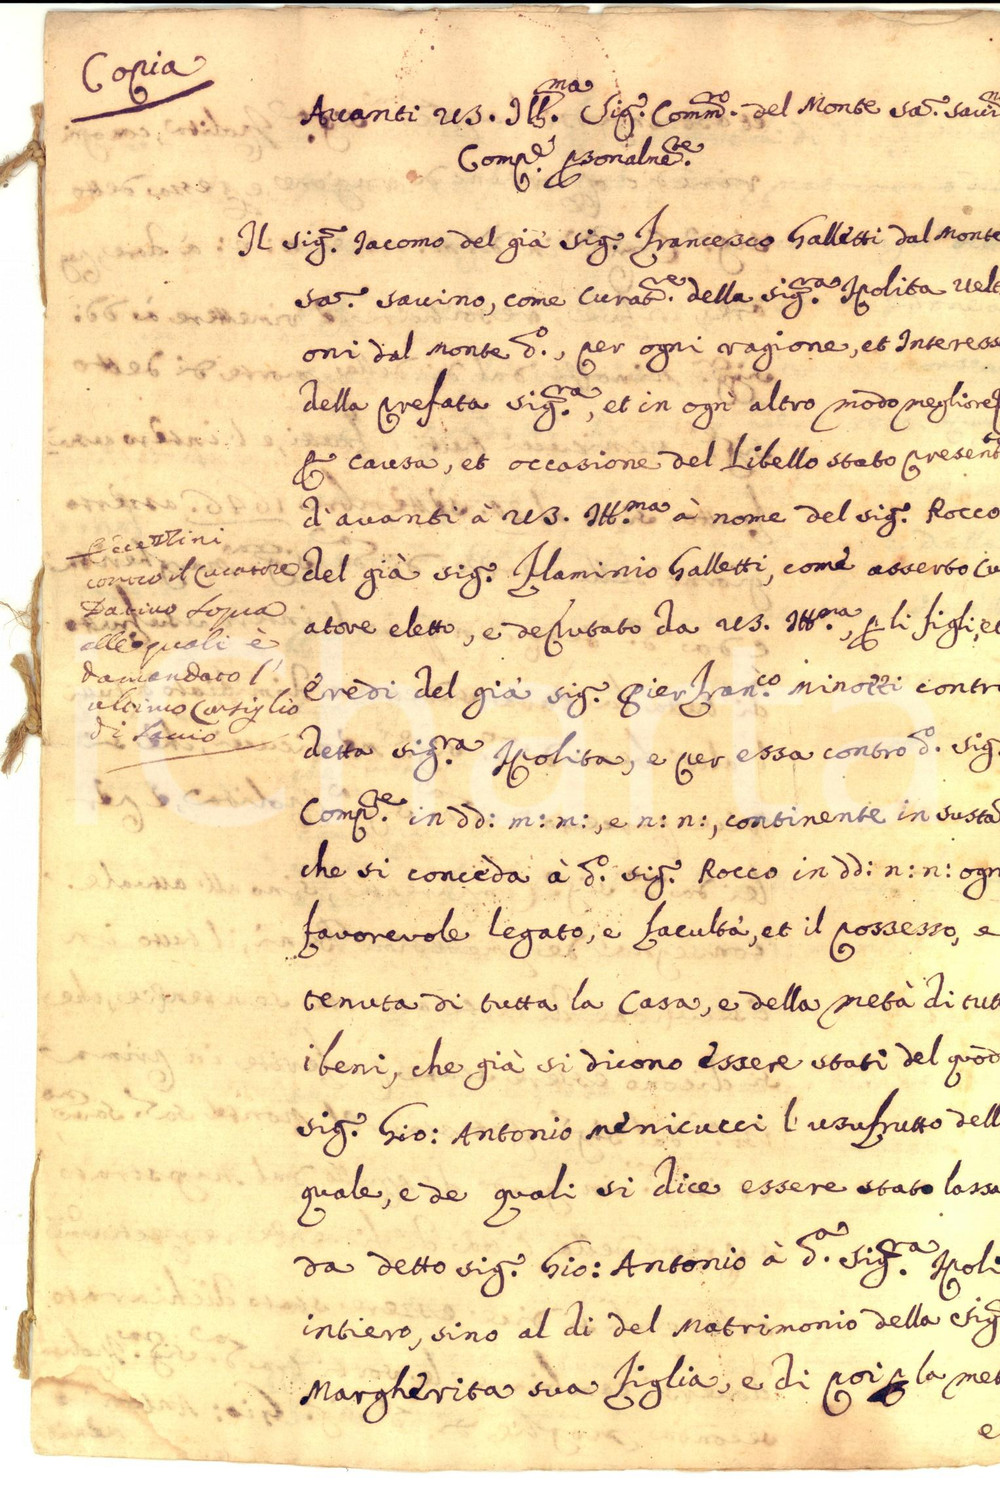 Copia
Auanti VS. Ill.ma Sig.r Comm.ro del Monte Sa.^ Savin
Comp.e psonalme.te
Il Sig.r Iacomo del già Sig.r Francesco Galletti dal Monte
Sa.^ Sauino, come Curat.re della Sig.ra Ipolita Uelt
oni dal Monte d.o, per ogni ragione, et Interess
della prefata Sig.ra, et in ogni altro modo megliore
p causa, et occasione del Libello stato present
d'auanti à VS. Ill.ma à nome del Sig.r Rocco
del già Sig.r Flaminio Galletti, come asserto Cu
atore eletto, e deputato da VS. Ill.ma, p li figli, et
Eredi del già Sig.r Pier Fran.co Minotti contro
detta Sig.ra Ipolita, e per essa contro d.o Sig.
Comp.te in dd: m: m:, e n: n:, continente in susta
che si concèda à d.o Sig.r Rocco in dd: n: n: ogn
favorevole legato, e facultà, et il possesso, e
tenuta di tutta la Casa, e della metà di tut
i beni, che già si dicono èssere stati del quòd
Sig.r Gio: Antonio Menicucci l'usufrutto dell
quale, e de quali si dice essere stato lassa
da detto Sig.r Gio: Antonio à d.a Sig.ra Ipoli
intiero, sino al di del Matrimonio della Sig
Margherita sua figlia, e di poi p la met
e
controil Curatore
Dativo sopra
alle quali è
damandato l'
ultimo Consiglio
di Savio